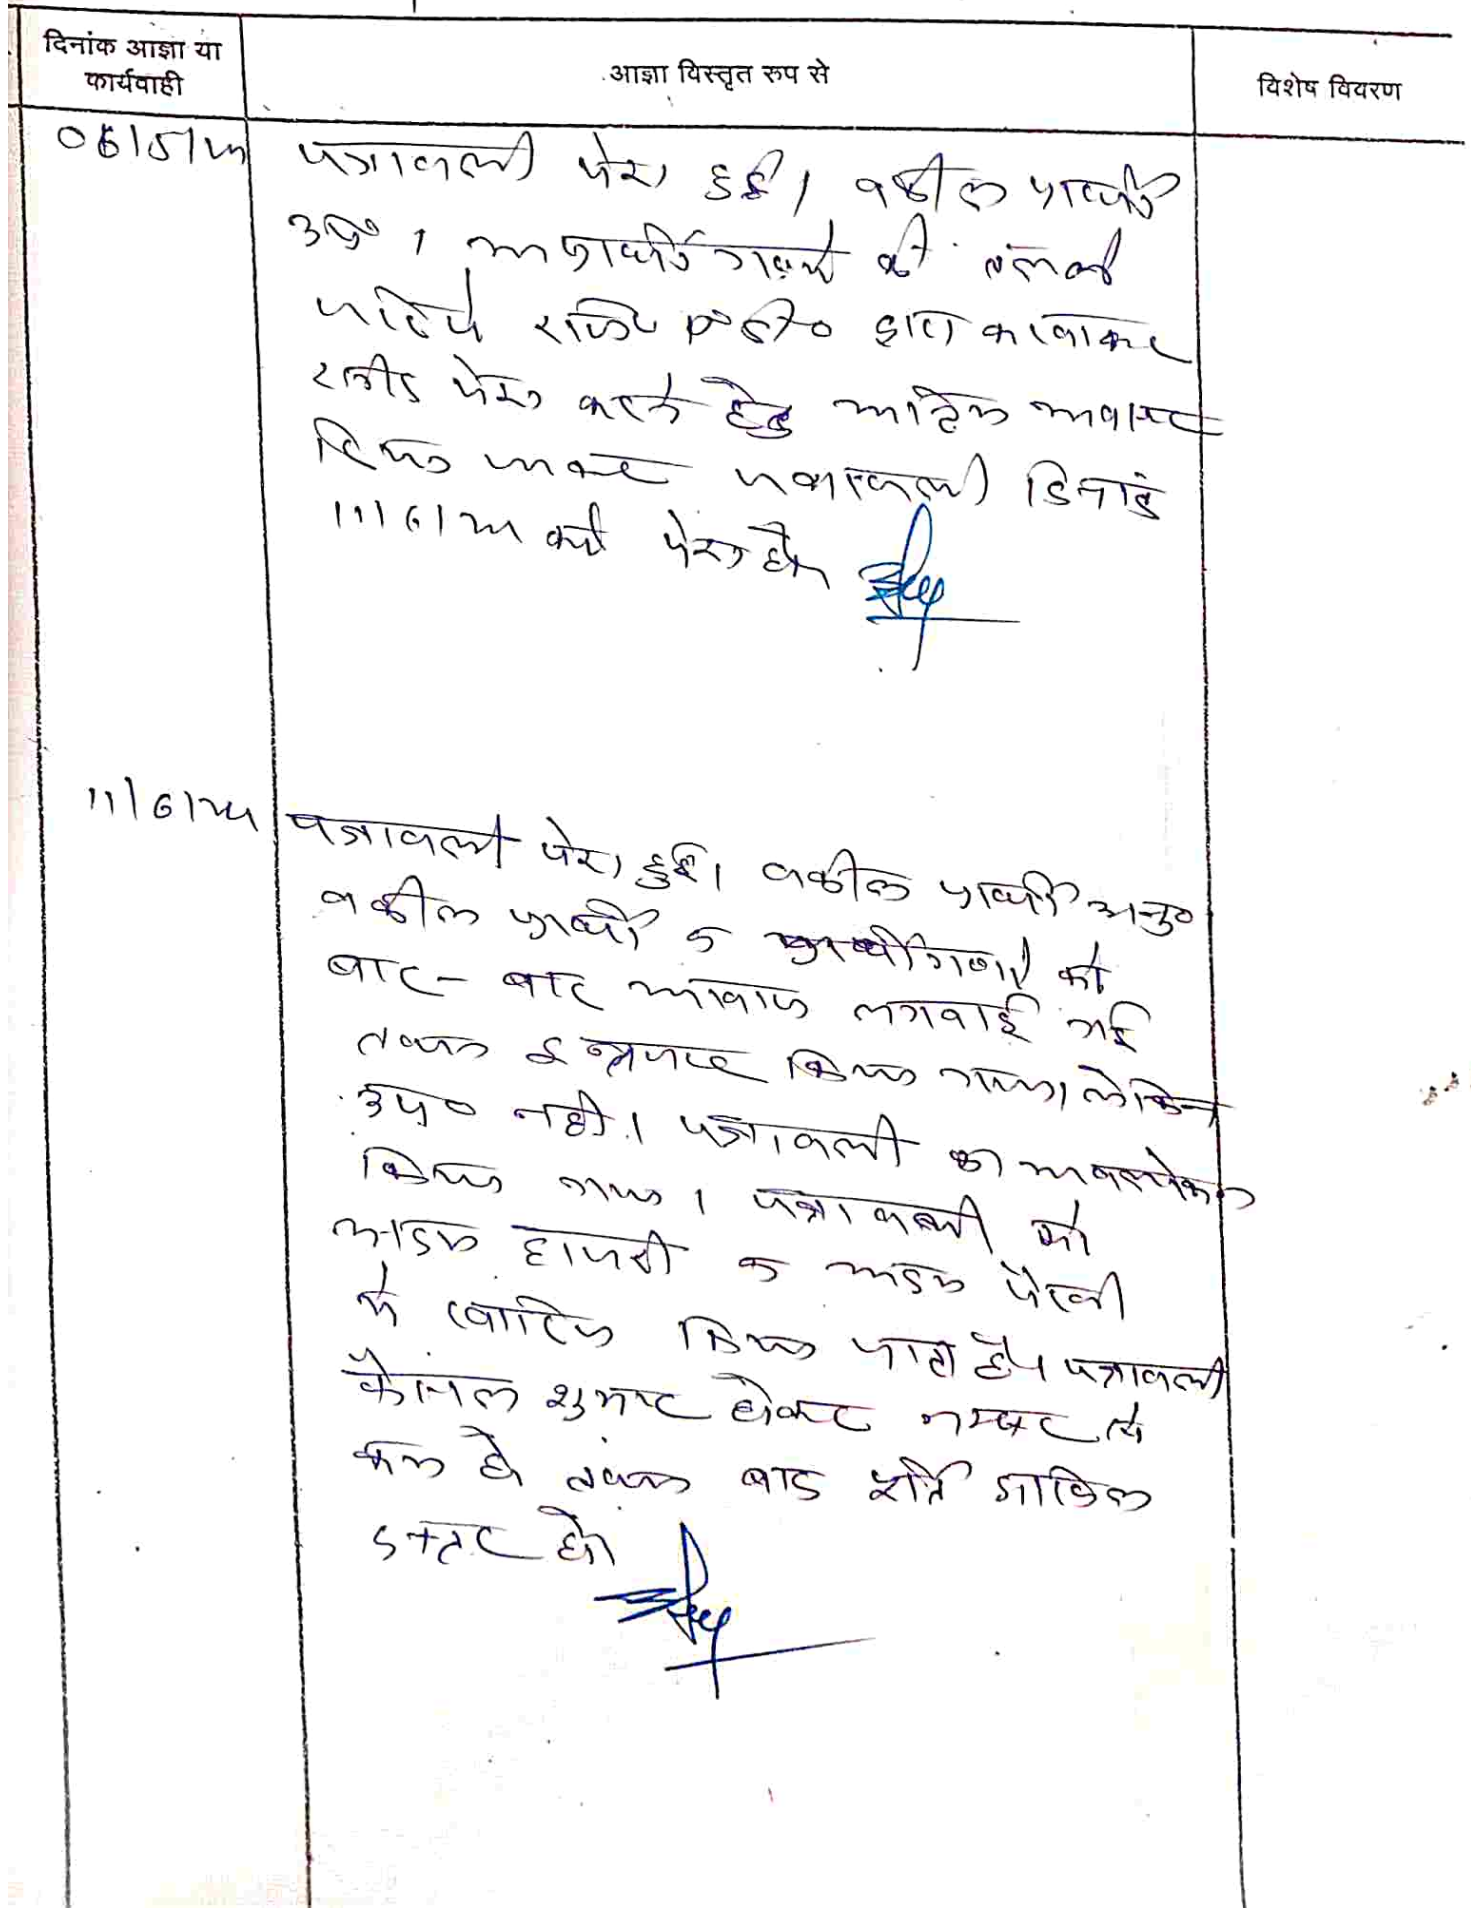 दिनांक आज्ञा या
कार्यवाही
आज्ञा विस्तृत रुप से
विशेष विवरण
पत्रावली पेश हुई। वकील प्रार्थी
उप०। अप्रार्थीगणों की तलबी
जरिये रजि० ए०डी० द्वारा करवाकर
रसीद पेश करने हेतु अन्तिम अवसर
दिया जाकर पत्रावली दिनांक
को पेश हो।
पत्रावली पेश हुई। वकील प्रार्थी अनु०
वकील प्रार्थी व प्रार्थीगणों को
बार- बार आवाज लगवाई गई
तथा इन्तजार किया गया। लेकिन
उप० नहीं। पत्रावली का अवलोकन
किया गया। पत्रावली को
अदम हाजरी व अदम पैरवी
में खारिज किया जाता है। पत्रावली
फैसल शुमार होकर नम्बर से
कम हो तथा बाद पूर्ति दाखिल
दफ्तर हो।